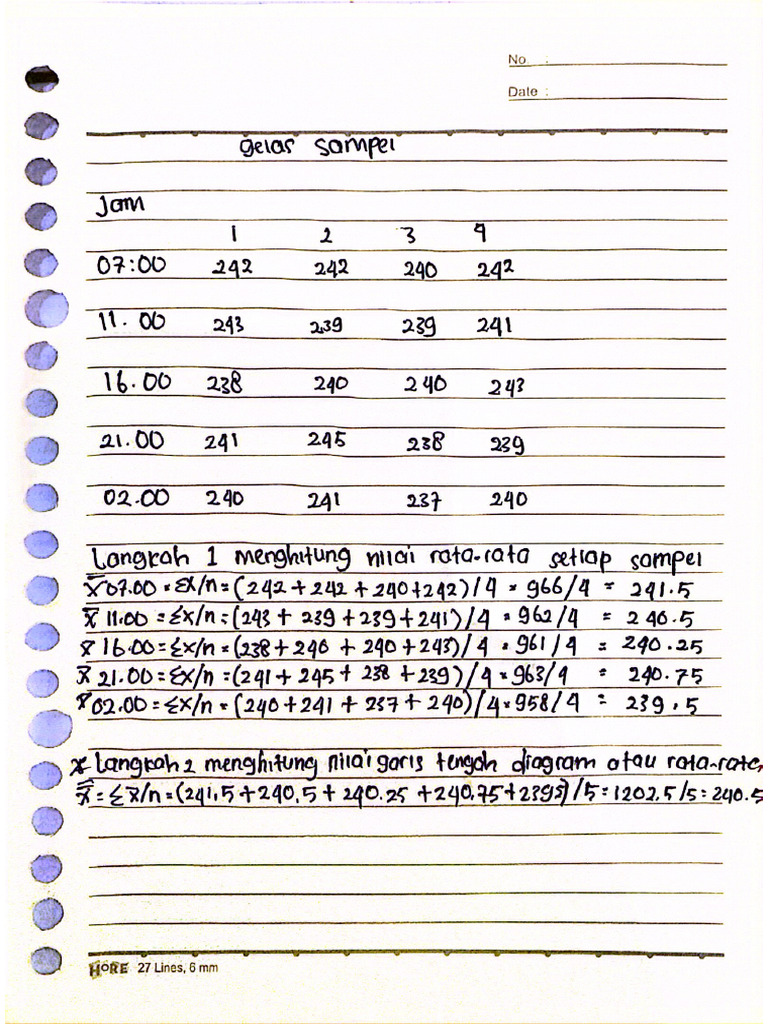 No. :
Date :
gelas sampel
Jam
1 2 3 4
07:00 242 242 240 242
11.00 243 239 239 241
16.00 238 240 240 243
21.00 241 245 238 239
02.00 240 241 237 240
Langkah 1 menghitung nilai rata-rata setiap sampel
x̄ 07.00 = Σx/n = (242 + 242 + 240 + 242) / 4 = 966/4 = 241.5
x̄ 11.00 = Σx/n = (243 + 239 + 239 + 241) / 4 = 962/4 = 240.5
x̄ 16.00 = Σx/n = (238 + 240 + 240 + 243) / 4 = 961/4 = 240.25
x̄ 21.00 = Σx/n = (241 + 245 + 238 + 239) / 4 = 963/4 = 240.75
x̄ 02.00 = Σx/n = (240 + 241 + 237 + 240) / 4 = 958/4 = 239.5
* Langkah 2 menghitung nilai garis tengah diagram atau rata-rata
x̿ = Σx̄/n = (241,5 + 240.5 + 240.25 + 240,75 + 239,5) / 5 = 1202.5/5 = 240.5
HORE 27 Lines, 6 mm